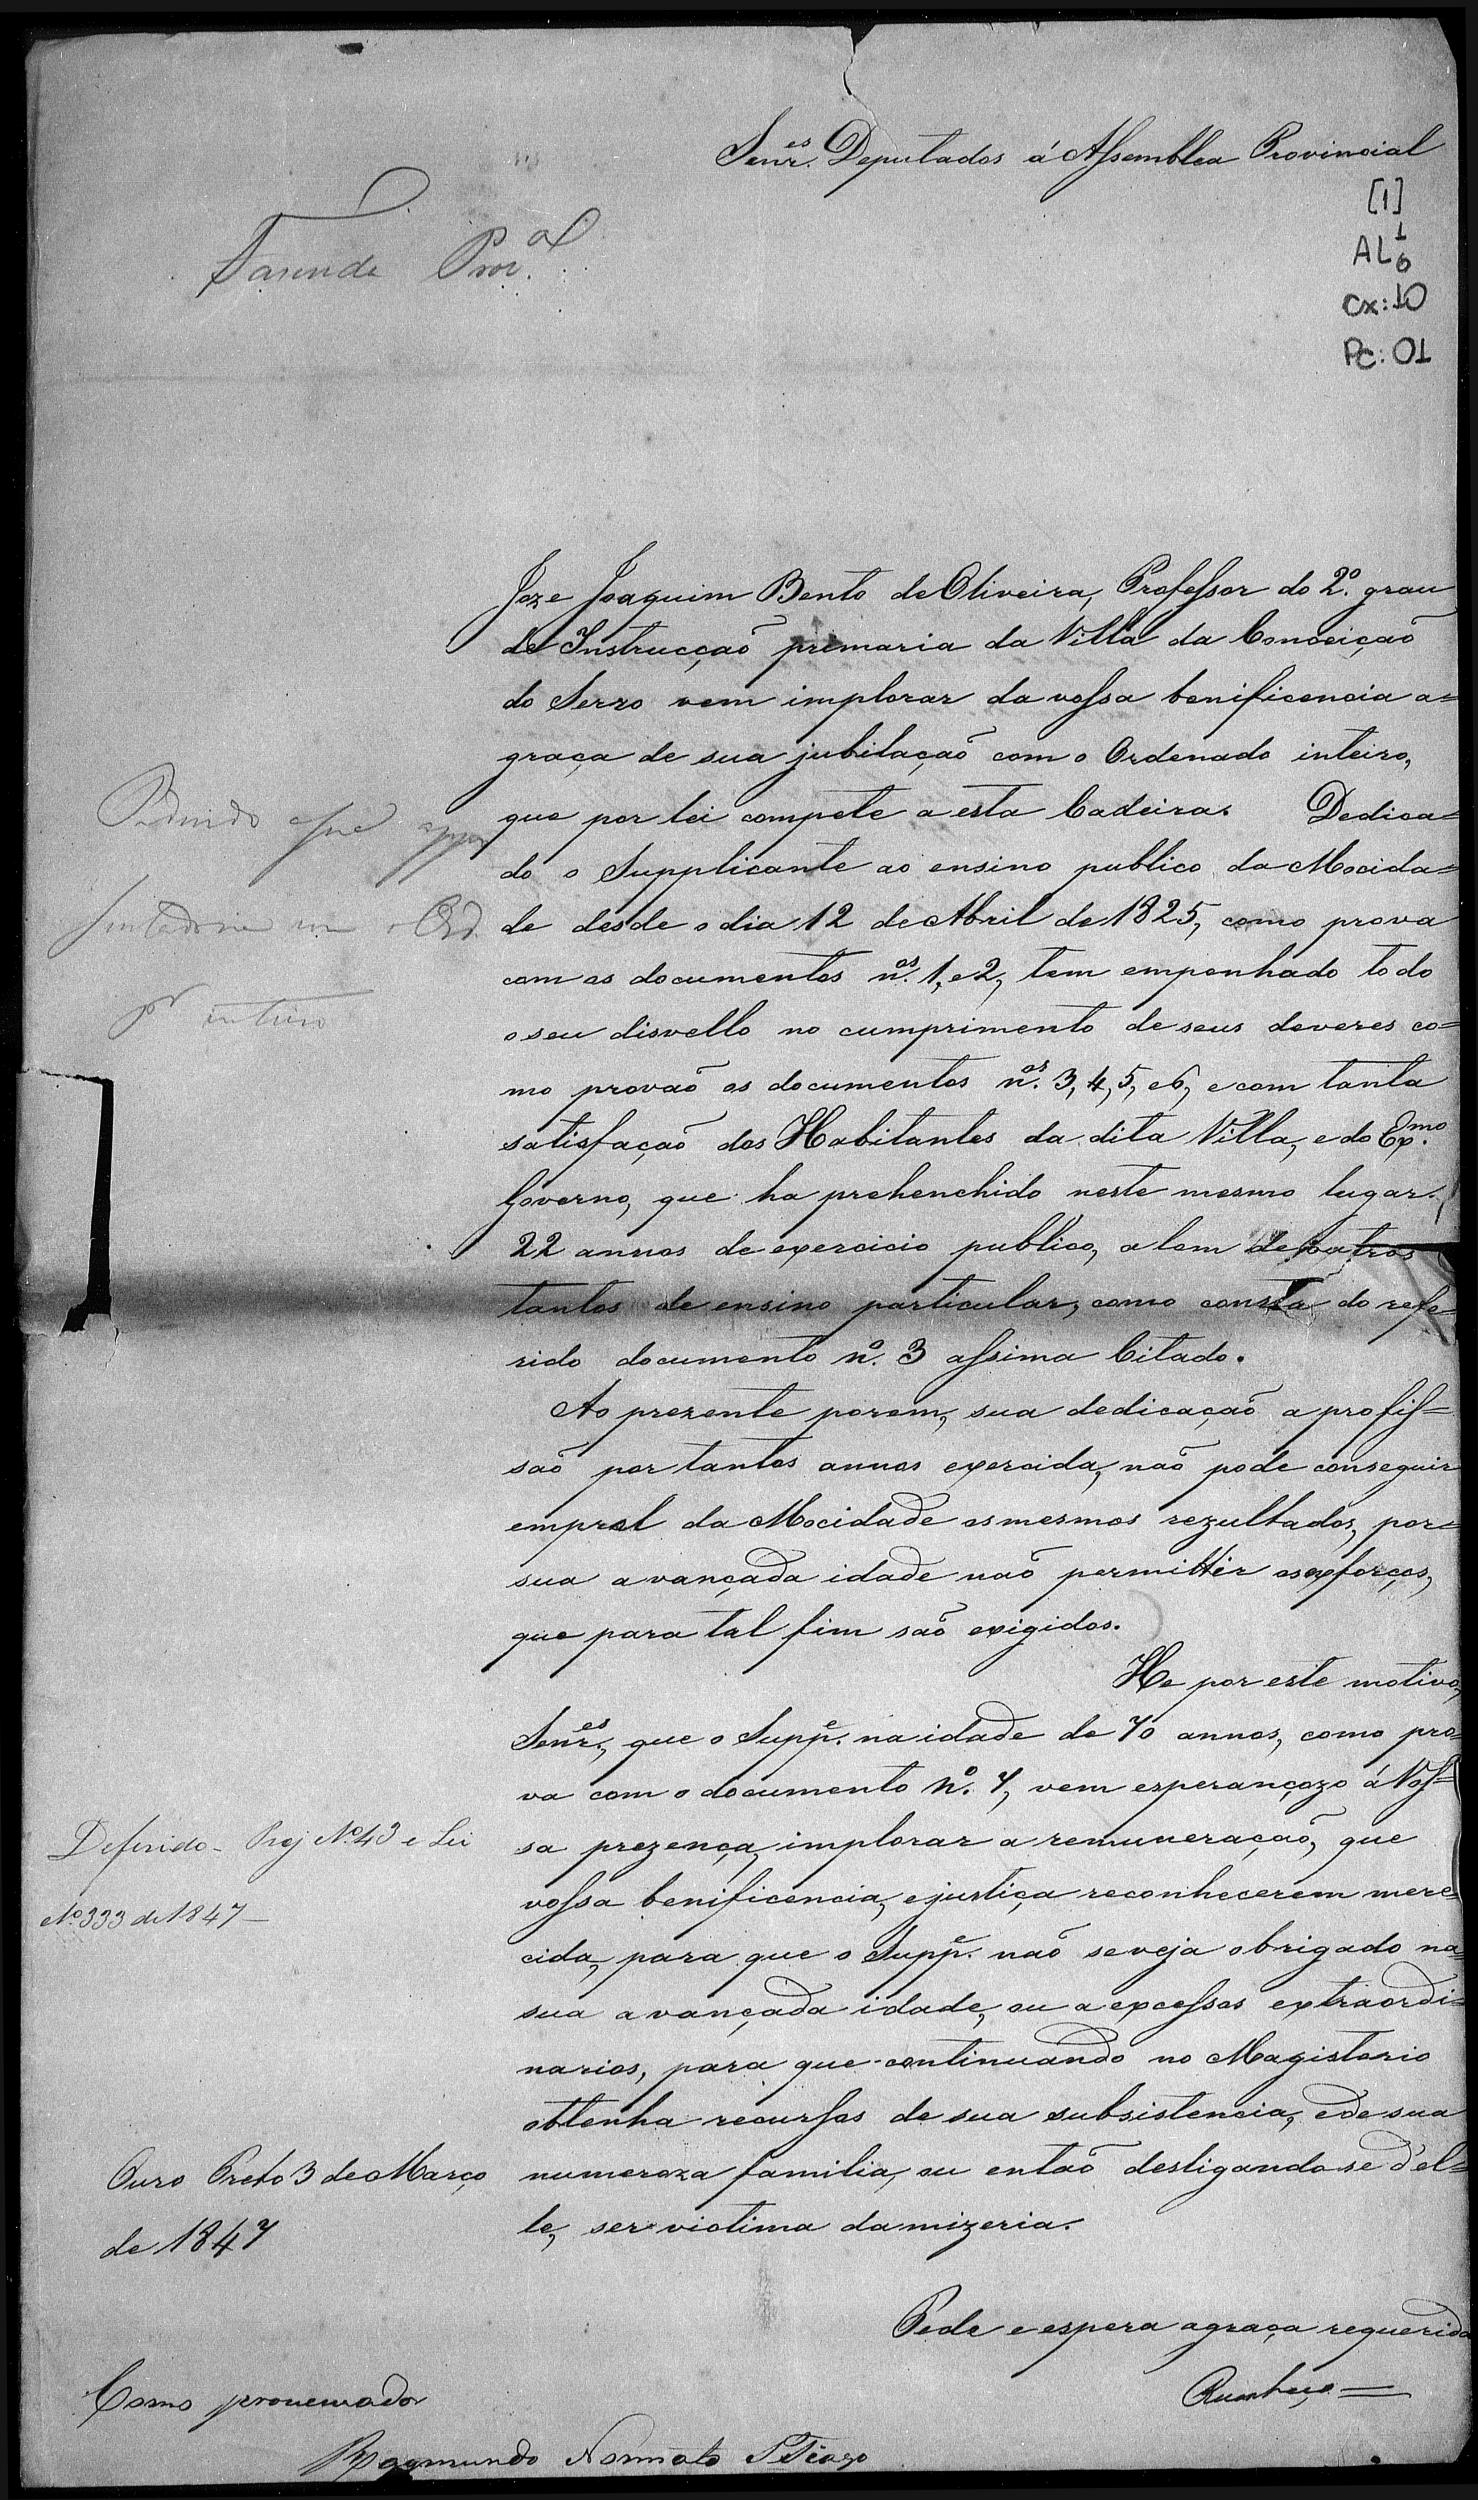 Senr.es Deputados á Assemblea Provincial
[1]
AL 1
6
Cx: 10
Pc: 01
Fasenda Pro.al
Joze Joaquim Bento de Oliveira, Professor do 2º. grau
de Instrucçaõ primaria da Villa da Conceiçaõ
do Serro vem implorar da vossa benificencia a=
graça de sua jubilaçaõ com o Ordenado inteiro,
que por lei compete a esta Cadeira. Dedica=
do o Supplicante ao ensino publico da Mocida=
de desde o dia 12 de Abril de 1825, como prova
com os documentos nos. 1, e 2, tem empenhado todo
o seu disvello no cumprimento de seus deveres co=
mo provaõ os documentos nos. 3, 4, 5, e 6, e com tanta
satisfaçaõ dos Habitantes da dita Villa, e do Exmo.
Governo, que ha prehenchido neste mesmo lugar
22 annos de exercicio publico, alem de outros
tantos de ensino particular, como consta do refe=
rido documento nº. 3 assima Citado.
Ao prezente porem, sua dedicaçaõ a profis=
saõ por tantos annos exercida, naõ pode conseguir
emprol da Mocidade os mesmos rezultados, por=
sua avançada idade naõ permittir os exforços,
que para tal fim saõ exigidos.
He por este motivo,
Senr.es, que o Suppe. na idade de 70 annos, como pro=
va com o documento Nº. 7, vem esperançozo á Vos=
sa prezença, implorar a remuneraçaõ, que
vossa benificencia, e justiça reconhecerem mere=
cida, para que o Suppe. naõ se veja obrigado na=
sua avançada idade, ou a excessos extraordi=
narios, para que continuando no Magisterio
obtenha recursos de sua subsistencia, e de sua
numeroza familia, ou entaõ desligando-se d'el=
le, ser victima da mizeria.
Pede e espera a graça requerida
Pedindo appo
sentadoria com o Ord.
pr inteiro
Deferido - Proj Nº 43 e Lei
Nº 333 de 1847 -
Ouro Preto 3 de Março
de 1847
Como procurador
Raymundo Nonnato STiago